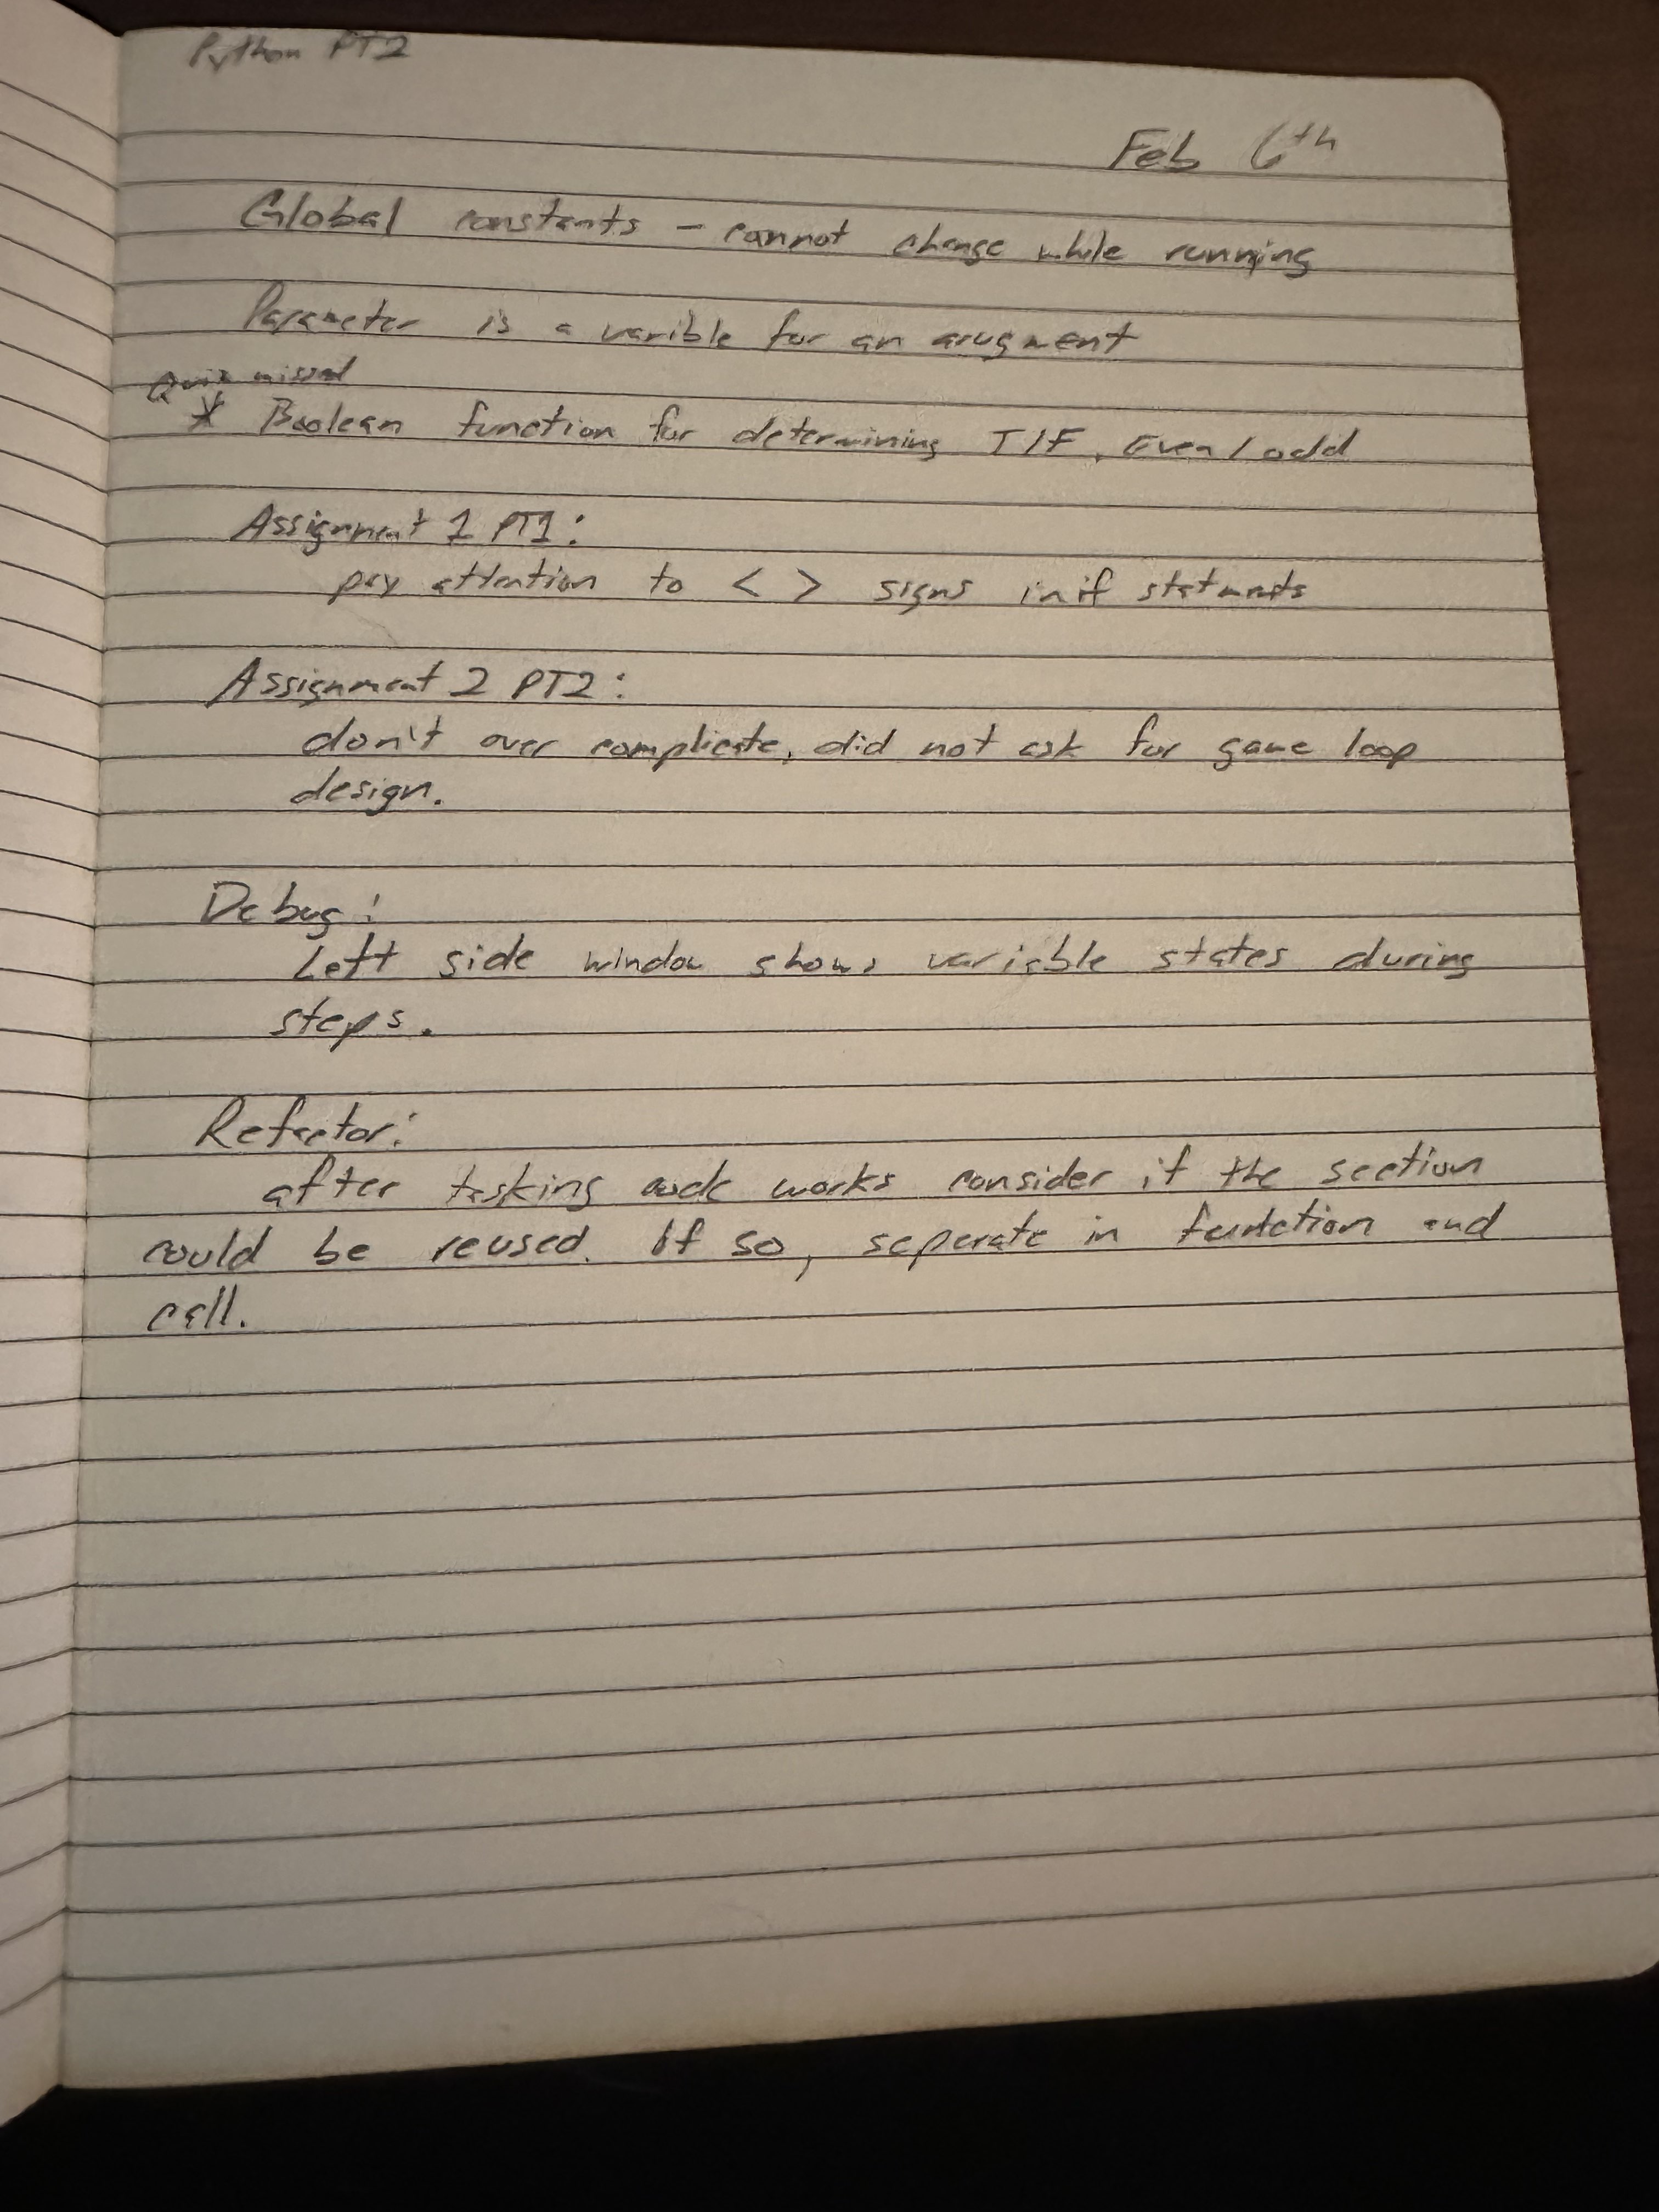 Python PT2
Feb 6th
Global constants - cannot change while running
Parameter is a varible for an arugment
Quiz missed
* Boolean function for determining T/F, Even/odd
Assignment 1 PT1:
pay attention to < > signs in if statments
Assignment 2 PT2:
don't over complicate, did not ask for game loop
design.
Debug:
Left side window shows variable states during
steps.
Refactor:
after tasking code works consider if the section
could be reused. If so, seperate in function and
call.